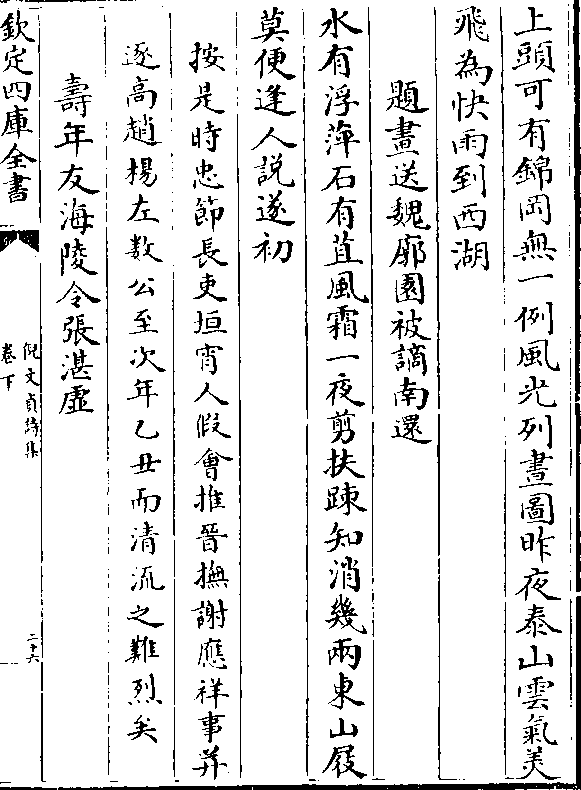 上頭可有錦岡無一例風光列畫圖昨夜泰山雲氣美
飛為快雨到西湖
題畫送魏廓園被謫南還
水有浮萍石有苴風霜一夜剪扶踈知消幾兩東山屐
莫便逢人説遂初
按是時忠節長吏垣宵人假會推晉撫謝應祥事並
逐高趙楊左數公至次年乙丑而清流之難烈矣
壽年友海陵令張湛虛
欽定四庫全書
倪文貞詩集
卷下
二十六